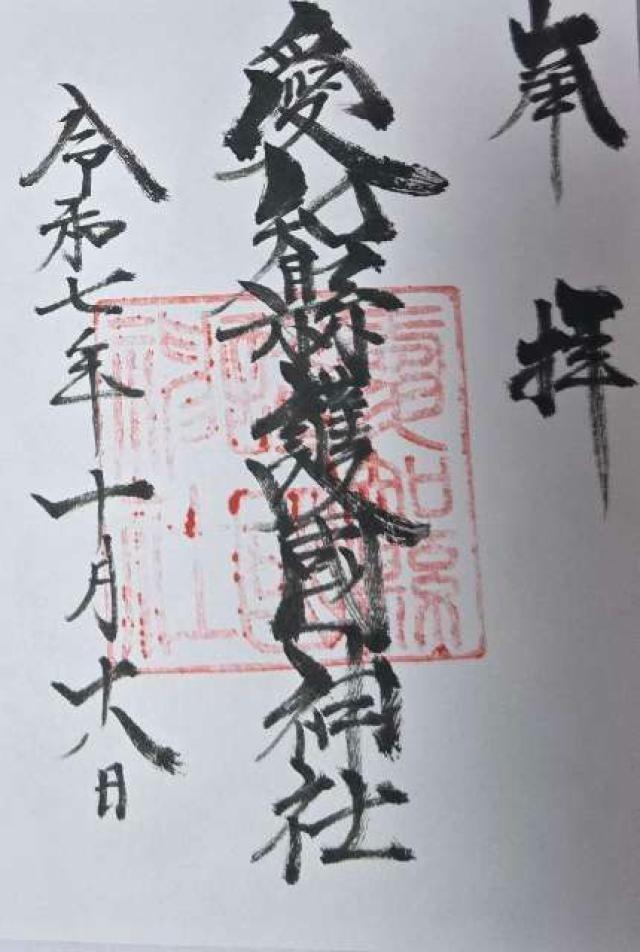 奉拝
愛知縣護國神社
令和七年十月十八日